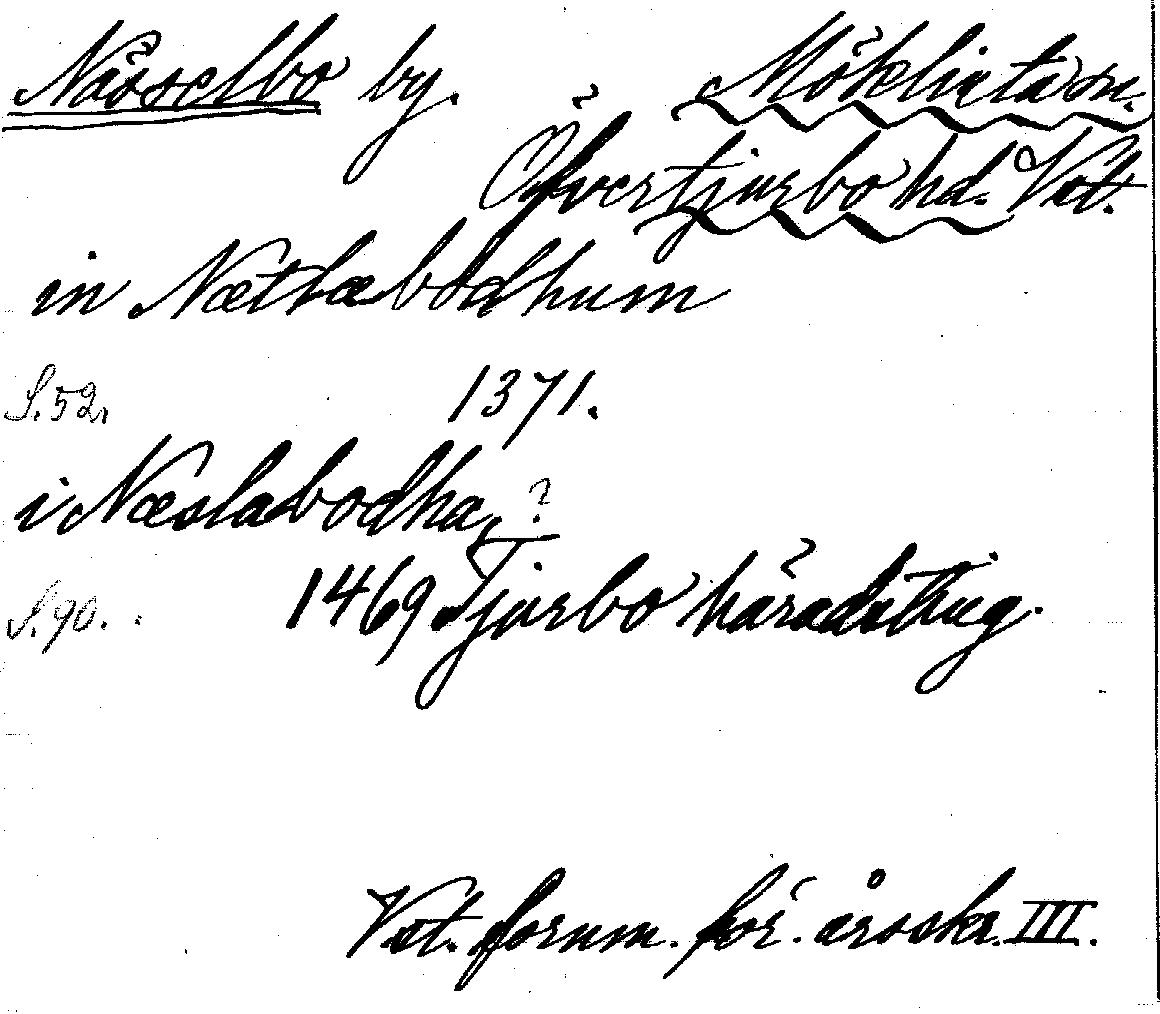 Nässelbo by. Möklinta sn.
Öfvertjurbo hd. Vstl.
in Nætlæbodhum
S. 52. 1371.
i Næslabodha, ?
S. 90. 1469 Tjurbo häradsting.
Vst. fornm. för. årsskr. III.